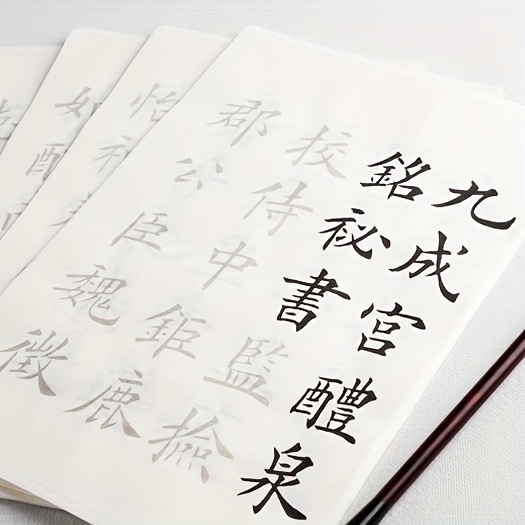 九成宮醴泉
銘祕書監撿
校侍中鉅鹿
郡公臣魏徵
怡
如